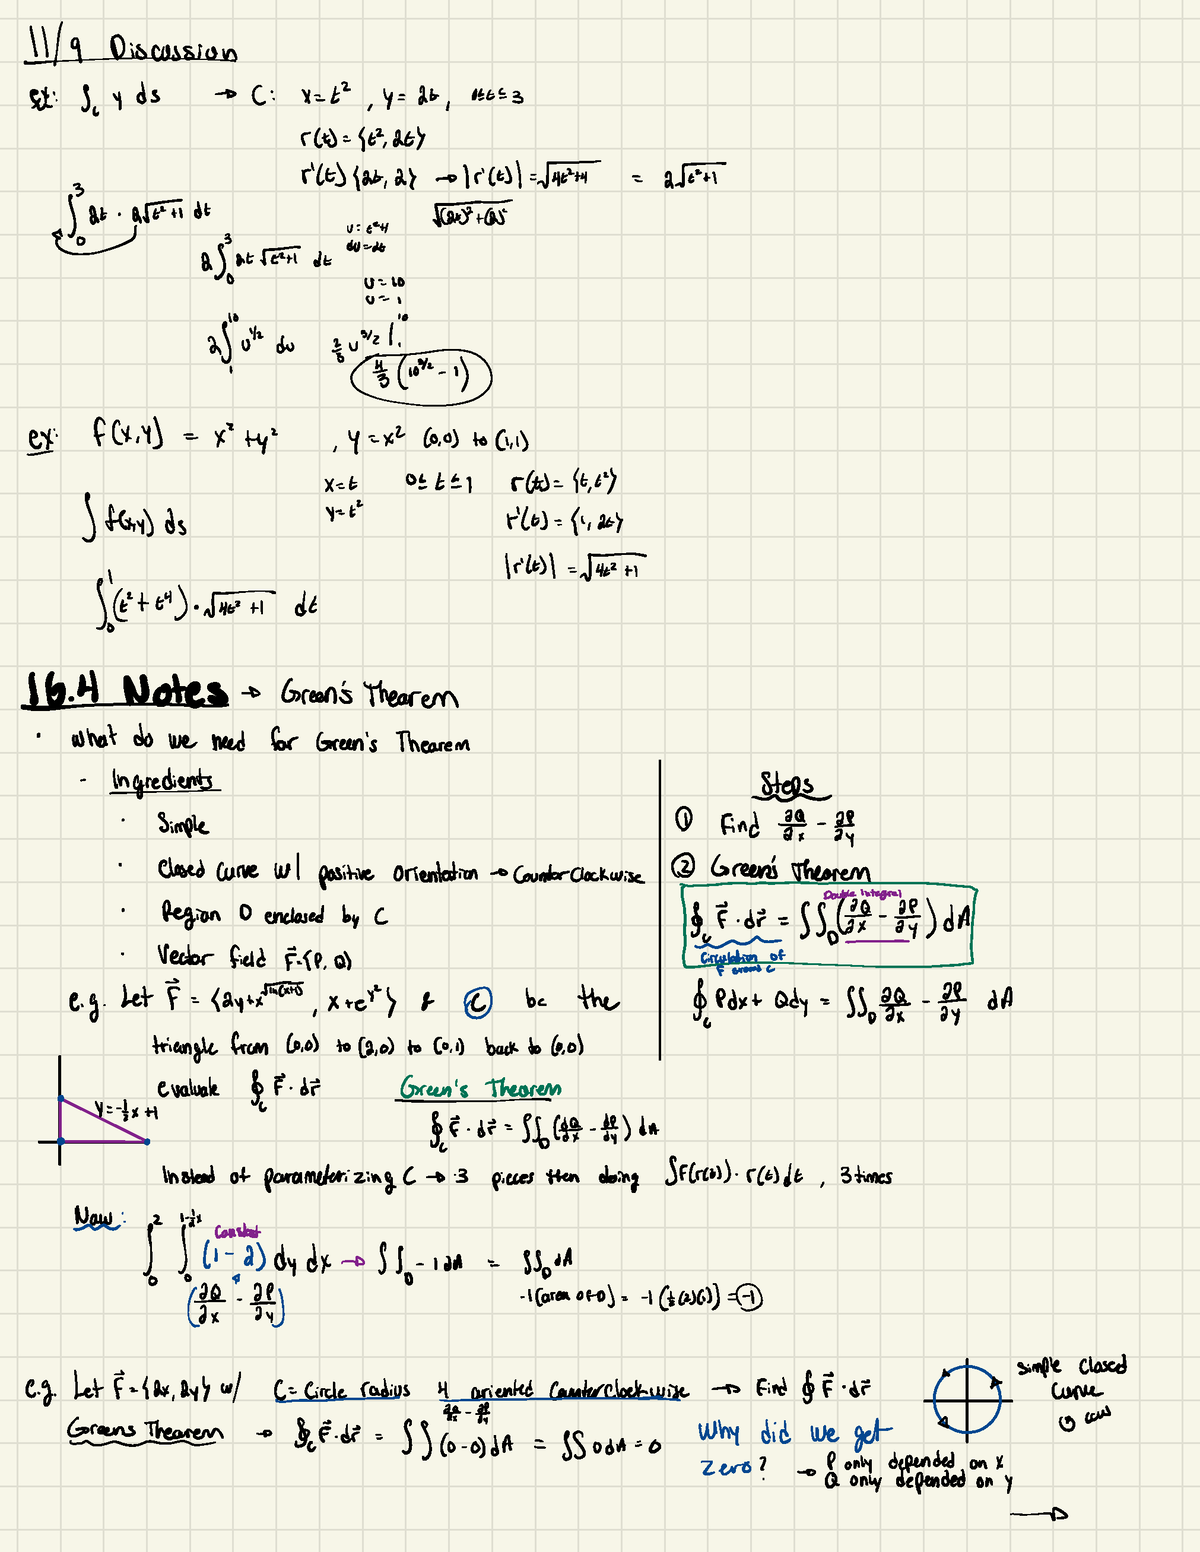 11/9 Discussion
ex: ∫_c y ds → C: x = t², y = 2t, 0≤t≤3
r(t) = {t², 2t}
r'(t) {2t, 2} → |r'(t)| = √(4t²+4) = 2√(t²+1)
√((2t)²+(2)²
∫_0^3 2t · 2√(t²+1) dt
2∫_0^3 2t √(t²+1) dt
u = t²+1
du = dt
u = 10
u = 1
2∫_1^10 u^(1/2) du 2/3 u^(3/2) |_1^10
4/3 (10^(3/2) - 1)
ex: f(x,y) = x² + y² , y = x² (0,0) to (1,1)
x = t 0 ≤ t ≤ 1 r(t) = {t, t²}
y = t²
∫ f(x,y) ds
r'(t) = {1, 2t}
|r'(t)| = √(4t² + 1)
∫_0^1 (t² + t⁴) · √(4t² + 1) dt
16.4 Notes → Green's Thearem
· What do we need for Green's Thearem
- Ingredients
· Simple
· Closed curve w/ positive orientation → Counter Clockwise
· Region D enclosed by C
· Vector field F⃗ = {P, Q}
Steps
① Find ∂Q/∂x - ∂P/∂y
② Green's Theorem
Double integral
∮_c F⃗ · dr⃗ = ∫∫_D (∂Q/∂x - ∂P/∂y) dA
Circulation of
F around c
∮_c Pdx + Qdy = ∫∫_D ∂Q/∂x - ∂P/∂y dA
e.g. Let F⃗ = {2y + x , x + e^(y²)} & C be the
triangle from (0,0) to (2,0) to (0,1) back to (0,0)
evaluate ∮_c F⃗ · dr⃗
y = -1/2 x + 1
Green's Thearem
∮_c F⃗ · dr⃗ = ∫∫_D (∂Q/∂x - ∂P/∂y) dA
Instead of parameterizing C → 3 pieces then doing ∫F(r(t)) · r(t) dt , 3 times
Now:
Constant
∫_0^2 ∫_0^(1-1/2x) (1 - 2) dy dx → ∫∫_D -1 dA = ∫∫_D dA
(∂Q/∂x - ∂P/∂y)
-1(area of D) = -1(1/2(2)(1)) = -1
e.g. Let F⃗ = {2x, 2y} w/ C = Circle radius 4 oriented Counterclockwise → Find ∮ F⃗ · dr⃗
∂Q/∂x - ∂P/∂y
Greens Thearem → ∮_c F⃗ · dr⃗ = ∫∫ (0-0) dA = ∫∫ 0 dA = 0
Why did we get
zero? → P only depended on x
Q only depended on y
simple closed
curve
ccw